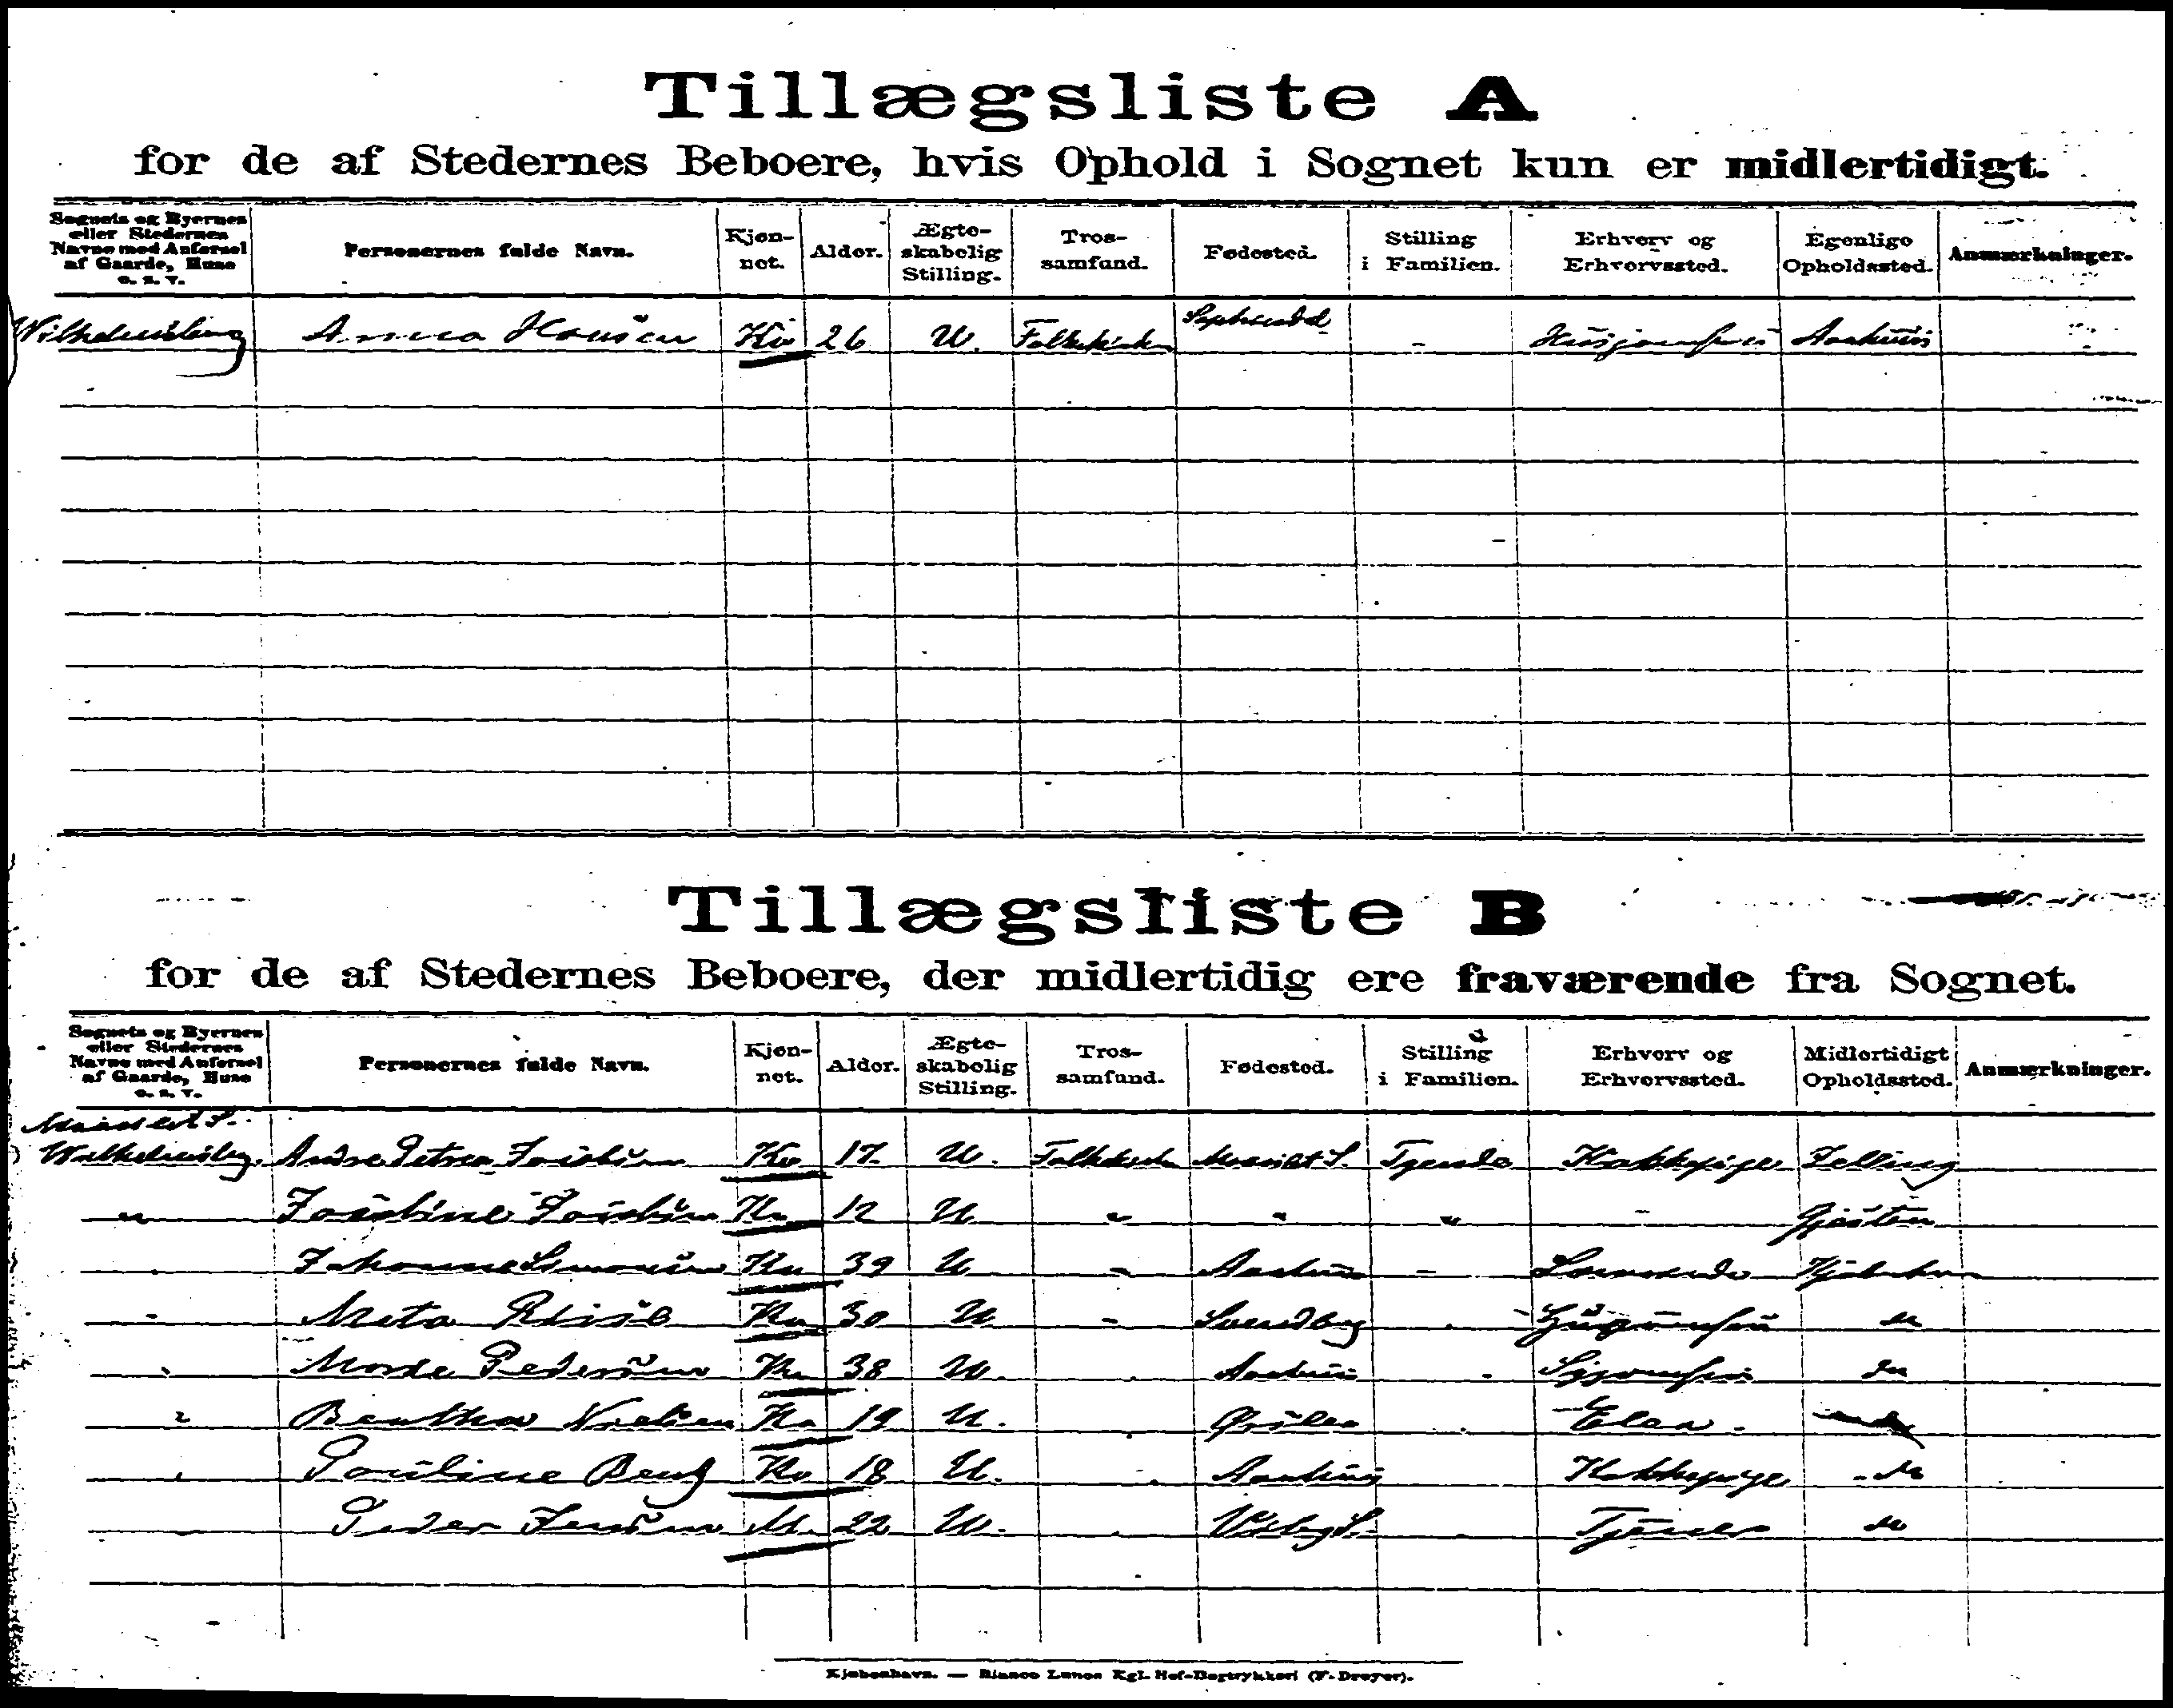 Tillægsliste A
for de af Stedernes Beboere, hvis Ophold i Sognet kun er midlertidigt.
Sognets og Byernes eller Stedernes Navne med Anførsel af Gaarde, Huse o. s. v. Personernes fulde Navn. Kjøn-net. Alder. Ægte-skabelig Stilling. Tros-samfund. Fødested. Stilling i Familien. Erhverv og Erhvervssted. Egenlige Opholdssted. Anmærkninger.
Wilhelmsborg Anna Hansen Kv 26 U. Folkekirken - Husjomfru Aarhuus
Tillægsliste B
for de af Stedernes Beboere, der midlertidig ere fraværende fra Sognet.
Sognets og Byernes eller Stedernes Navne med Anførsel af Gaarde, Huse o. s. v. Personernes fulde Navn. Kjøn-net. Alder. Ægte-skabelig Stilling. Tros-samfund. Fødested. Stilling i Familien. Erhverv og Erhvervssted. Midlertidigt Opholdssted. Anmærkninger.
Maarslet S.
Wilhelmsborg. Petrea Kv 17. U. Folkekirken Maarslet S. Tyende Kokkepige
" Kv 12 U " " " -
Johanne Simonsen Kv 39 U " Aarhuus - Kjøbenhavn
" Meta Kv 30 U " Svendborg Husjomfru do
" Pedersen Kv 38 U. Aarhuus do
" Bertha Nielsen Kv 19 U. Elev.
" Pouline Kv 18 U. Kokkepige do
" Peder Jensen M. 22 U. Tjener do
Kjøbenhavn. — Bianco Lunos Kgl. Hof-Bogtrykkeri (F. Dreyer).